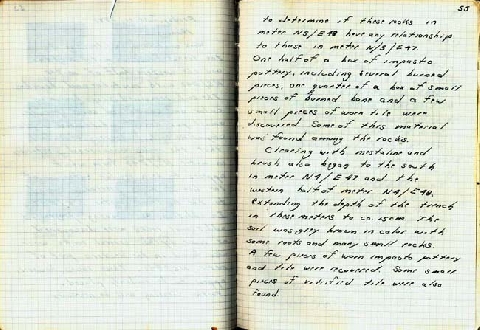 55
to determine if these rocks in
meter N3/E48 have any relationship
to those in meter N/3/E47.
One half of a box of impasto
pottery, including several burned
pieces, one quarter of a box of small
pieces of burned bone and a few
small pieces of worn tile were
discovered. Some of this material
was found among the rocks.
Clearing with pickaxe and
brush also began to the south
in meter N4/E47 and the
western half of meter N4/E48.
Extending the depth of the trench
in these meters to ca 15cm. The
soil was grey brown in color with
some roots and many small rocks.
A few pieces of worn impasto pottery
and tile were recovered. Some small
pieces of vitrified tile were also
found.